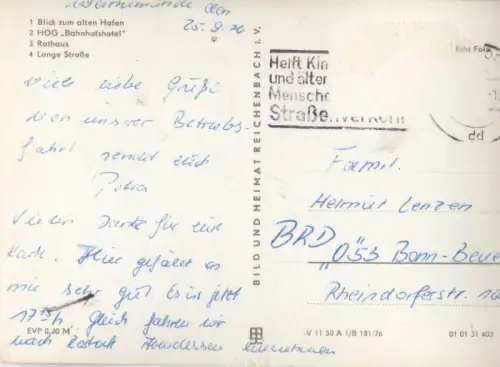 Warnemünde den
25.9.76
1 Blick zum alten Hafen
2 HOG „Bahnhofshotel"
3 Rathaus
4 Lange Straße
Viele liebe Grüße
von unserer Betriebs-
fahrt sendet euch
Petra
Vielen Danke für eure
Karte. Hier gefällt es
mir sehr gut! Es ist jetzt
17 15h Gleich fahren wir
nach Rostock
EVP 0,20 M
BILD UND HEIMAT REICHENBACH I. V.
Echt Foto
Helft Kin
und älter
Mensche
Straßenverkehr
Famil.
Helmut Lenzen
BRD „053 Bonn-Beue
Rheindorferstr.
V 11 50 A 1/B 181/76
01 01 31 403